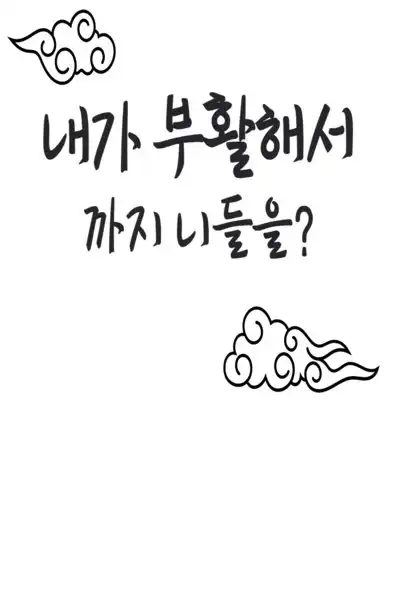 내가 부활해서
까지 니들을?